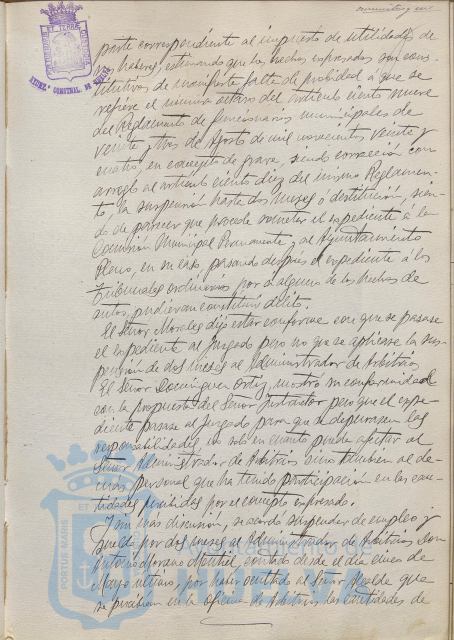 noventa y un
parte correspondiente al impuesto de utilidades de
sus haberes, estimando que los hechos expresados son cons-
titutivos de manifiesta falta de probidad a que se
refiere el número octavo del artículo ciento nueve
del Reglamento de funcionarios municipales de
veinte y tres de Agosto de mil novecientos veinte y
cuatro, en concepto de grave, siendo corrección con
arreglo al artículo ciento diez del mismo Reglamen-
to, la suspensión hasta dos meses ó destitución, sien-
do de parecer que procede someter el expediente a la
Comisión Municipal Permanente y al Ayuntamiento
Pleno, en su caso, pasando después el expediente á los
Tribunales ordinarios por si alguno de los hechos de
autos, pudieran constituir delito.
El Señor Morales dijo estar conforme con que se pasase
el expediente al Juzgado pero no que se aplicase la sus-
pensión de dos meses al Administrador de Arbitrios.
El Señor Domínguez Ortiz, mostró su conformidad
con la propuesta del Señor Instructor pero que el expe-
diente pasase al Juzgado para que se depurasen las
responsabilidades no solo en cuanto pueda afectar al
Señor Administrador de Arbitrios sino también al de-
más personal que ha tenido participación en las can-
tidades percibidas por el concepto expresado.
Y sin más discusión, se acordó suspender de empleo y
sueldo por dos meses al Administrador de Arbitrios Don
Antonio Moreno contados desde el día cinco de
Mayo último, por haber ocultado al Señor Alcalde que
se percibían en la oficina de Arbitrios las cantidades de
Ayuntamiento de
HUELVA
PORTUS MARIS